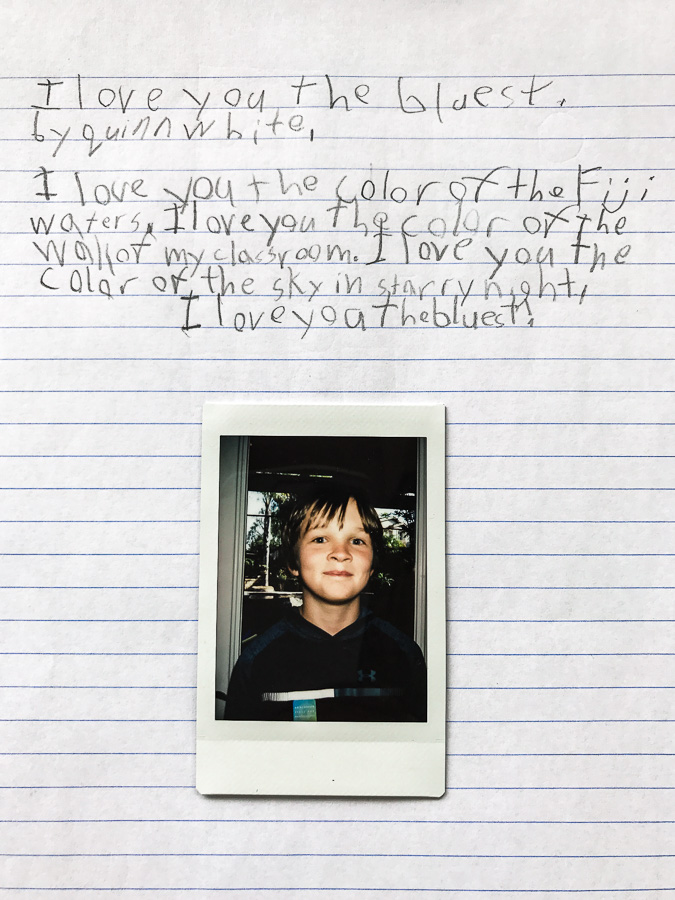 I love you the bluest.
by quinn white,
I love you the color of the Fiji
waters. I love you the color of the
wall of my classroom. I love you the
color of the sky in starry night,
I love you the bluest!